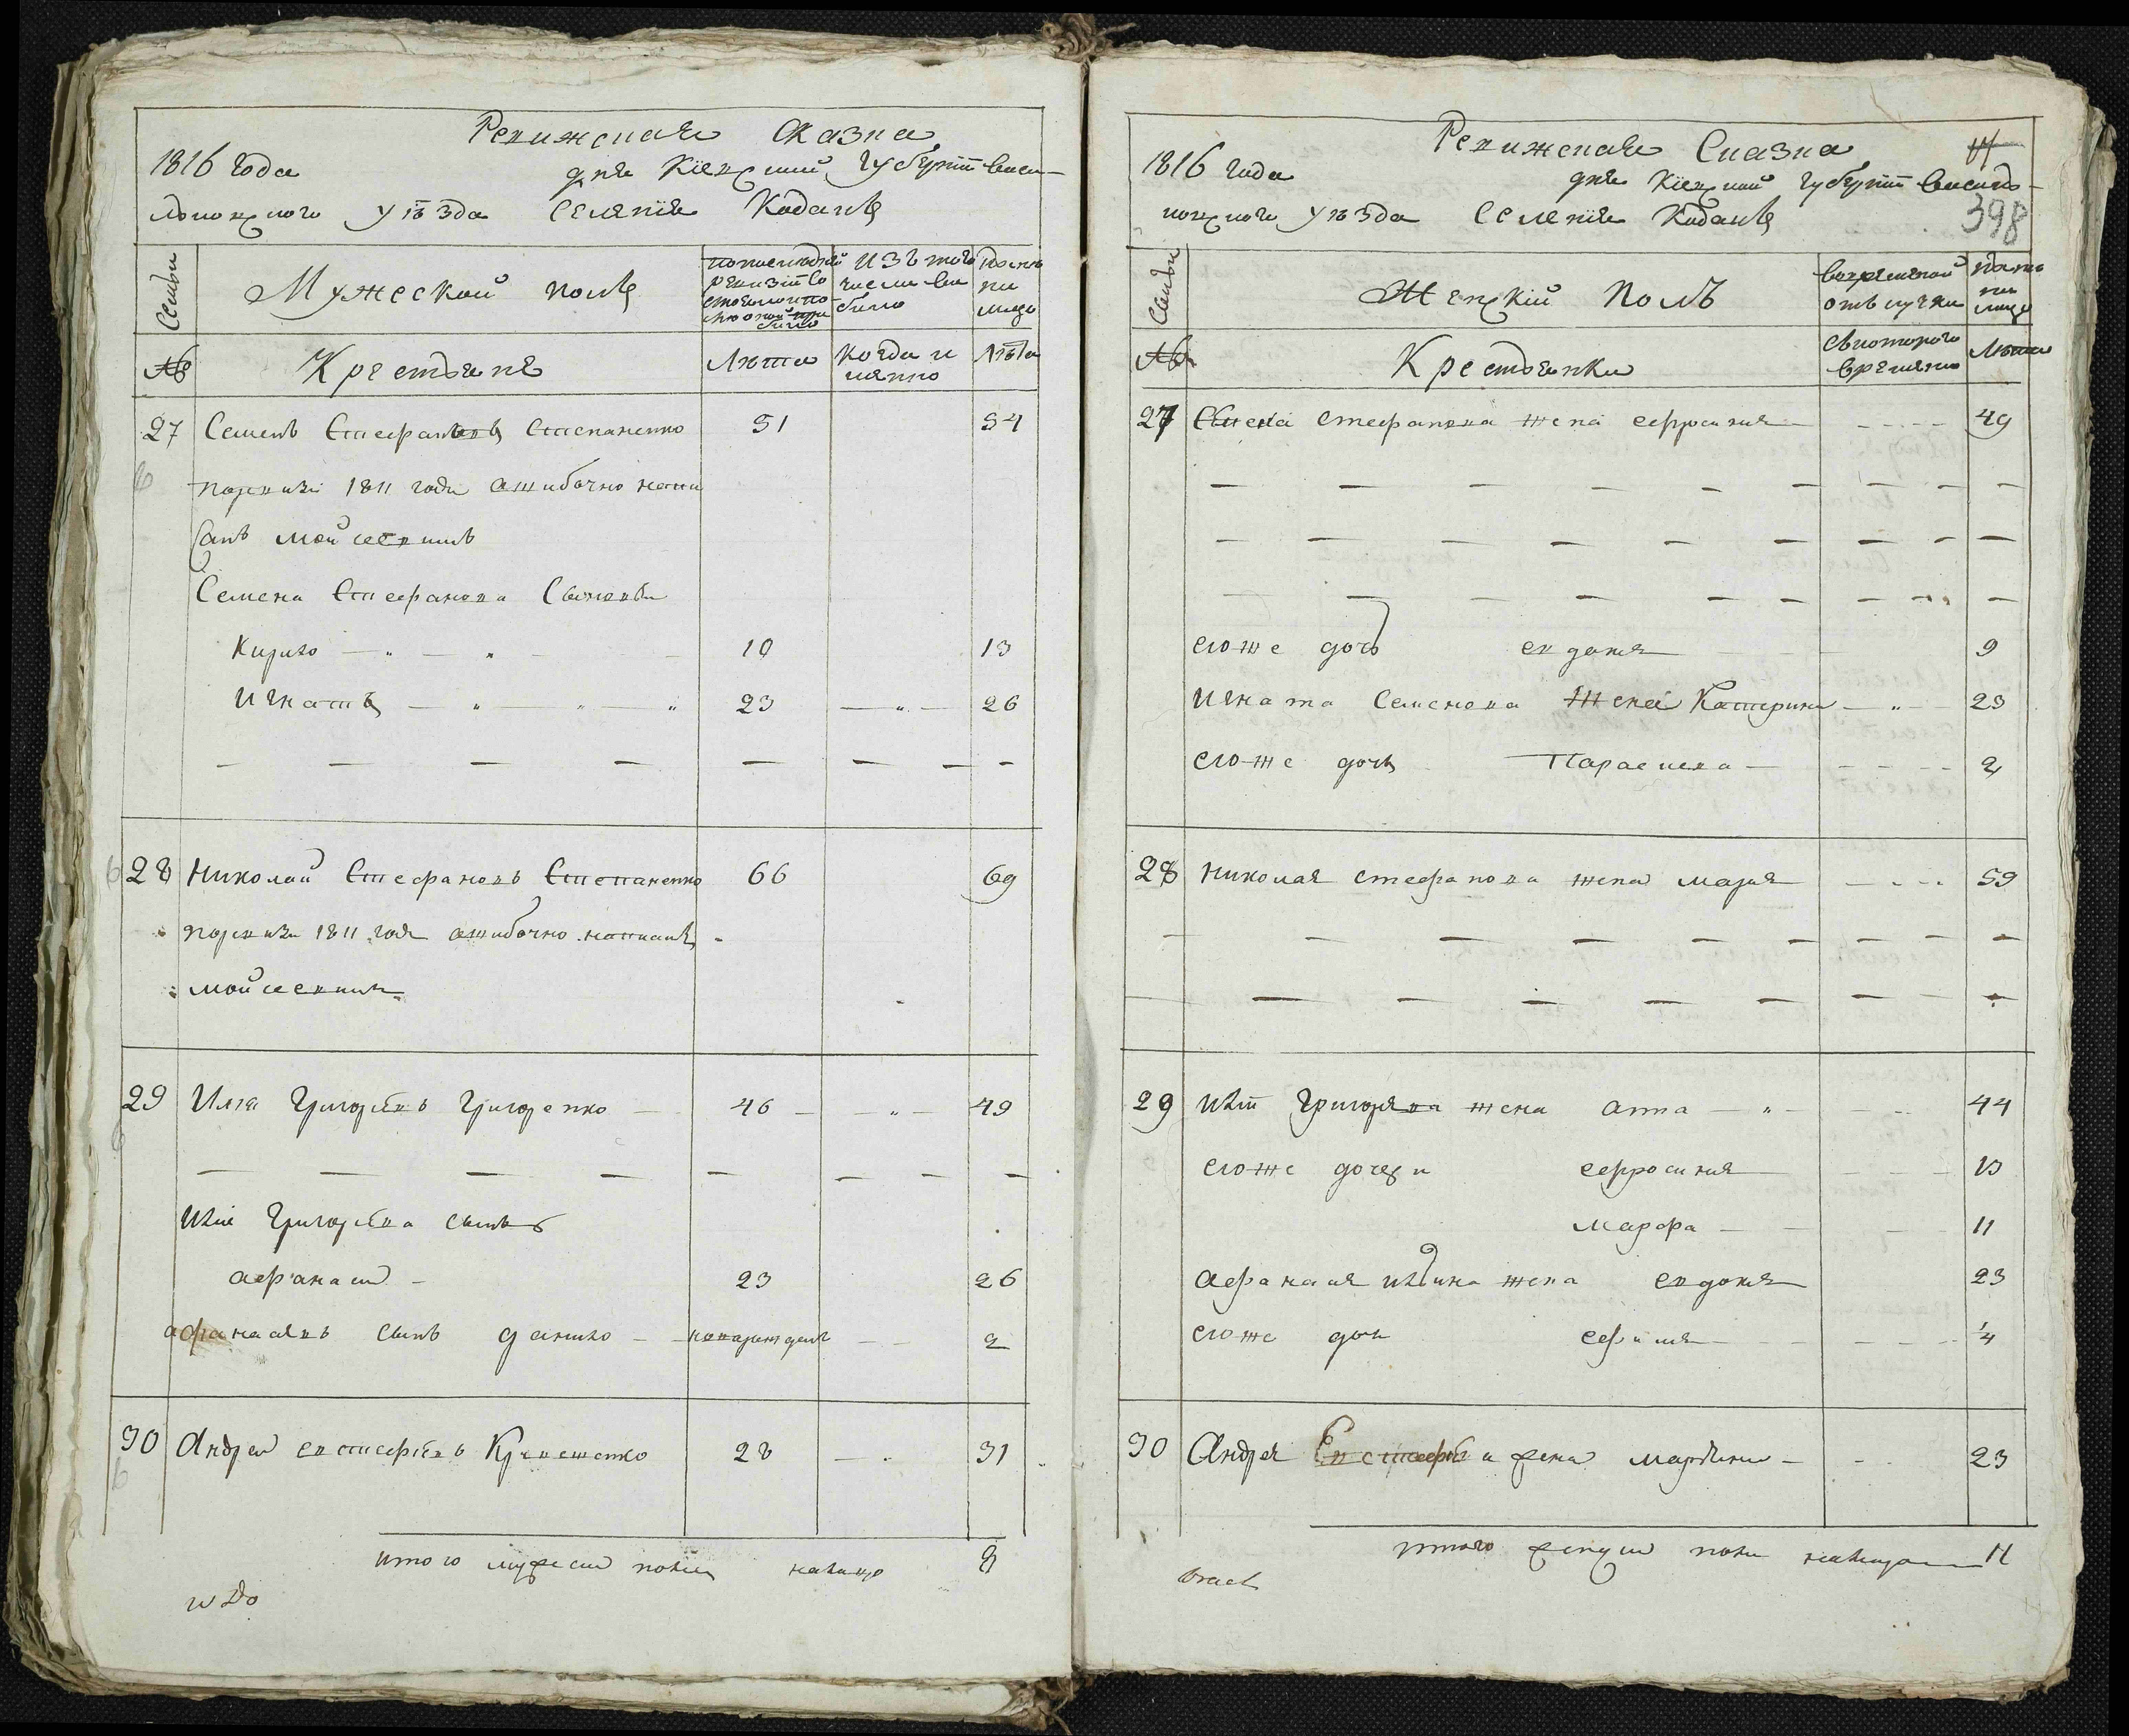 Ревижская Сказка
1816 года дня Кіевской губерніи Васи-
льковского уѣзда Селенія Коданъ
Семьи
Мужеской полъ
по последней ревизіи состояло и после оной прибыло
Изъ того числа выбыло
Ныне на лицо
№
Крестьяне
Лѣта
Когда и именно
Лѣта
27 Семенъ Стефановъ Степаненко 51 54
поревизіи 1811 года ошибочно напи
санъ Мойсеенком
Семена Стефанова Сыновьи
Кирило 10 13
Игнатъ 23 26
28 Николай Стефановъ Степаненко 66 69
поревизи 1811 годя ошибочно написанъ
Мойсеенком
29 Илія Григорієвъ Григоренко 46 49
Иліи Григорієва сынъ
афанасій 23 26
афанасиевъ сынъ данило новорожденъ 2
30 Андрей евстафієвъ 28 31
итого мужеска пола налицо 8
Ревижская Сказка
1816 года дня Кіевской губерніи Василь-
ковского уѣзда Селенія Коданъ
398
Семьи
Женскій Полъ
Вовременной отълучки
Ныне на лицо
№
Крестьянки
Скоторого времяни
Лѣта
27 Семена Стефанова жена ефросиния 49
его же дочь евдокия 9
Игната Семенова жена Катерина 23
его же дочь Параскева 2
28 Николая Стефанова жена Мария 59
29 Иліи Григориева жена анна 44
его же дочери ефросиния 13
Марфа 11
афанасия илина жена евдокия 23
его же дочь ефимия 1/4
30 Андрея Евстафиева жена Марьяна 23
итого женска пола налицо 11